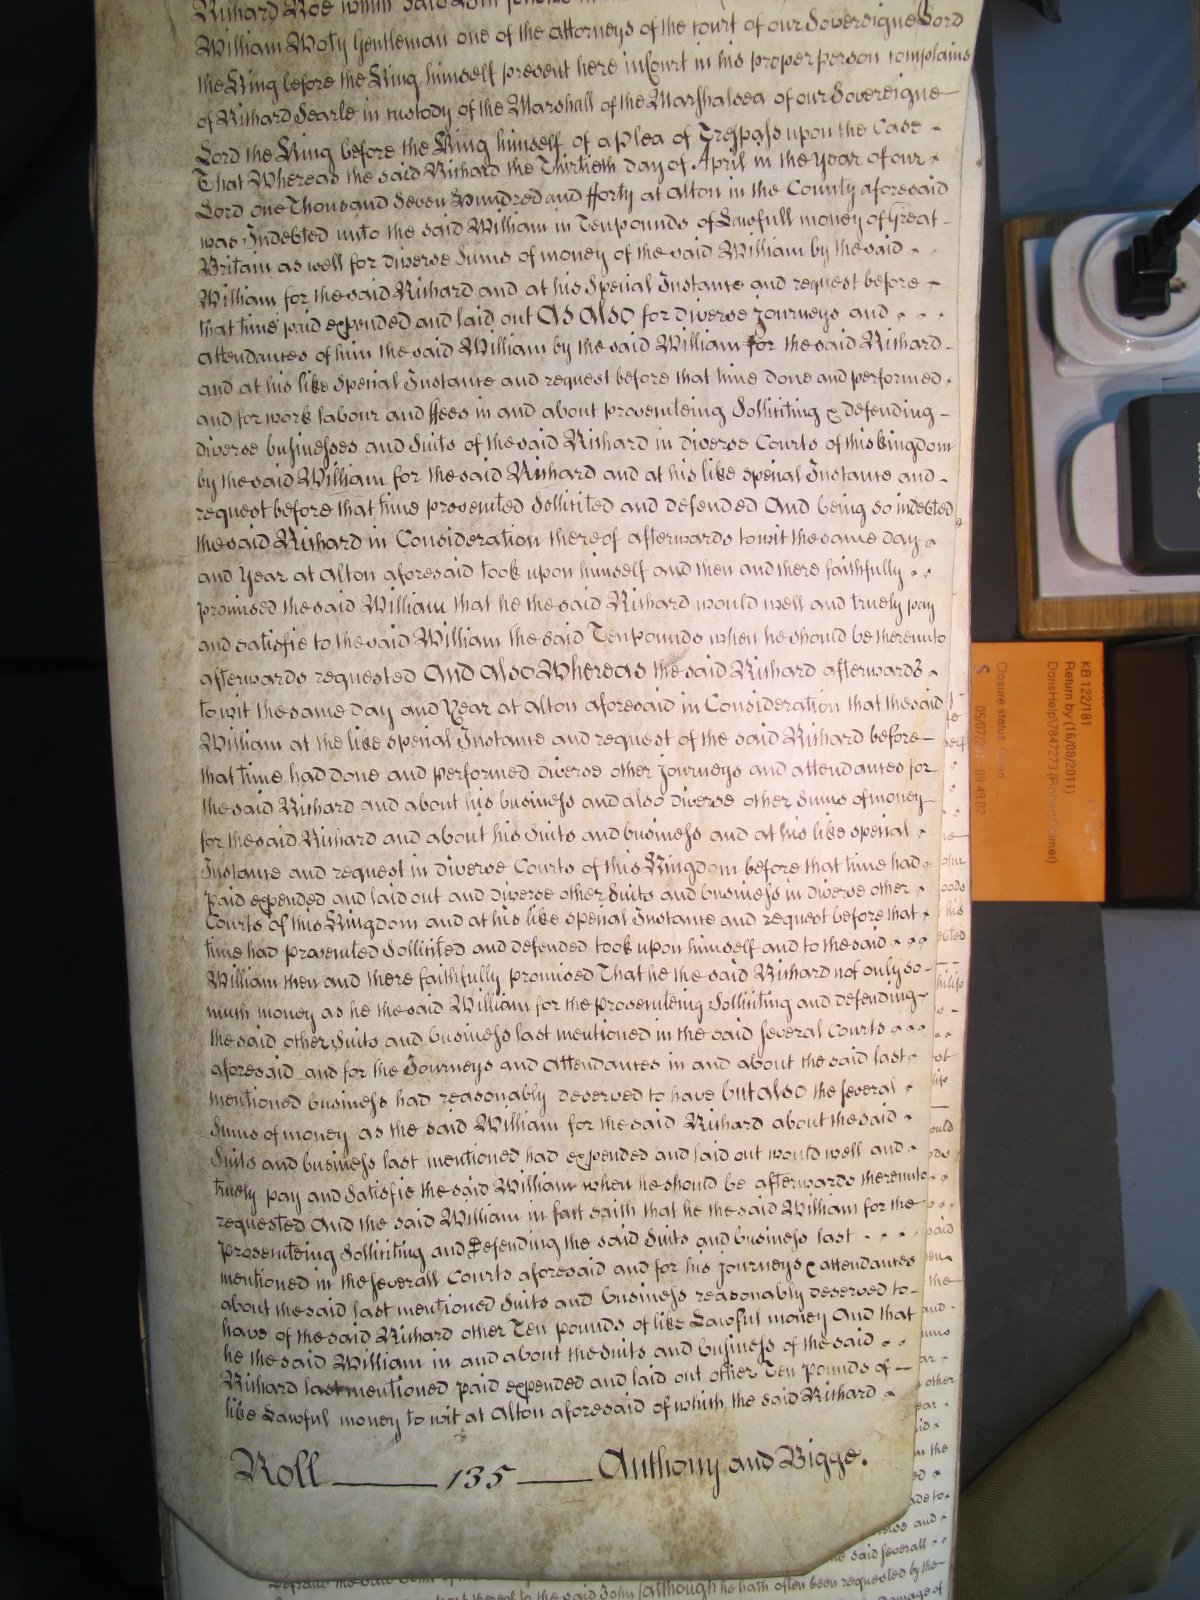 Richard Roe which said
William Woty Gentleman one of the attorneys of the Court of our Sovereigne Lord
the King before the King himself present here in Court in his proper person complains
of Richard Searle in custody of the Marshall of the Marshalsea of our Sovereigne
Lord the King before the King himself of a plea of Trespass upon the Case
That Whereas the said Richard the Thirtieth day of April in the Year of our
Lord one Thousand Seven Hundred and fforty at Alton in the County aforesaid
was Indebted unto the said William in Ten pounds of Lawfull money of Great
Britain as well for diverse Sums of money of the said William by the said
William for the said Richard and at his Special Instance and request before
that time paid expended and laid out As also for diverse Journeys and
attendances of him the said William by the said William for the said Richard
and at his like Special Instance and request before that time done and performed
and for work labour and ffees in and about prosecuteing Solliciting & defending
diverse businesses and Suits of the said Richard in diverse Courts of this kingdom
by the said William for the said Richard and at his like special Instance and
request before that time prosecuted Sollicited and defended And being so indebted
the said Richard in Consideration thereof afterwards towit the same day
and Year at Alton aforesaid took upon himself and then and there faithfully
promised the said William that he the said Richard would well and truely pay
and satisfie to the said William the said Ten pounds when he should be thereunto
afterwards requested And Also Whereas the said Richard afterwards
to wit the same day and Year at Alton aforesaid in Consideration that the said
William at the like special Instance and request of the said Richard before
that time had done and performed diverse other Journeys and attendances for
the said Richard and about his business and also diverse other Sums of money
for the said Richard and about his Suits and business and at his like special
Instance and request in diverse Courts of this Kingdom before that time had
paid expended and laid out and diverse other Suits and business in diverse other
Courts of this Kingdom and at his like special Instance and request before that
time had prosecuted Sollicited and defended took upon himself and to the said
William then and there faithfully promised That he the said Richard not only so
much money as he the said William for the prosecuteing Solliciting and defending
the said other Suits and business last mentioned in the said several Courts
aforesaid and for the Journeys and attendances in and about the said last
mentioned business had reasonably deserved to have but also the several
Sums of money as the said William for the said Richard about the said
Suits and business last mentioned had expended and laid out would well and
truely pay and Satisfie the said William when he should be afterwards thereunto
requested And the said William in fact saith that he the said William for the
prosecuteing Solliciting and Defending the said Suits and business last
mentioned in the severall Courts aforesaid and for his Journeys & attendances
about the said last mentioned Suits and business reasonably deserved to
have of the said Richard other Ten pounds of like Lawful money And that
he the said William in and about the Suits and business of the said
Richard last mentioned paid expended and laid out other Ten pounds of
like Lawful money to wit at Alton aforesaid of which the said Richard
Roll 135 Anthony and Bigge.
the said severall
thereof to the said John (although he hath often been requested by the
Damage of
KB 122/181
Return by (16/08/2011)
Closure status: Open